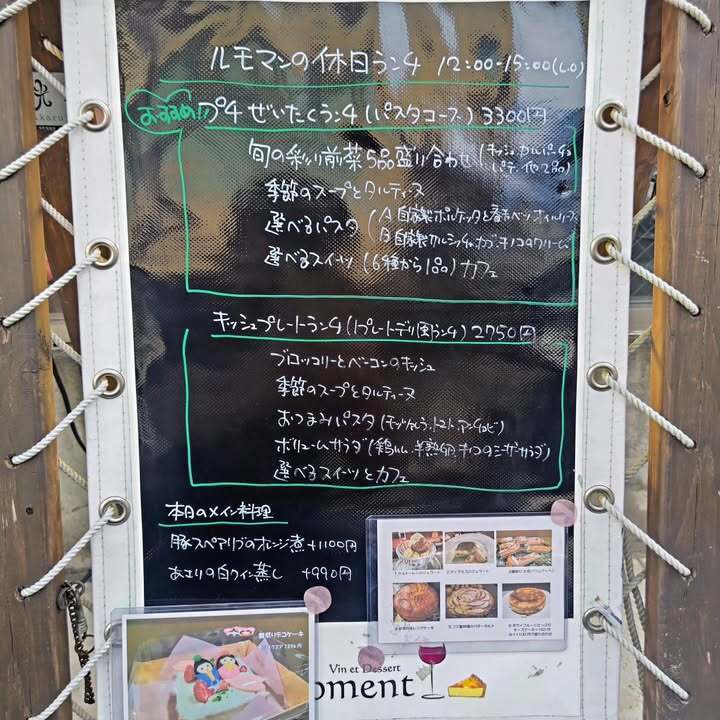 ルモマンの休日ランチ 12:00-15:00(L.O)
おすすめ!! プチぜいたくランチ(パスタコース) 3300円
旬の彩り前菜5品盛り合わせ(キッシュ、カルパッチョ
パテ、他2品)
季節のスープとタルティーヌ
選べるパスタ(A 自家製ポルケッタと春キャベツ オイルソース
B 自家製サルシッチャ、カブ、キノコのクリーム
選べるスイーツ(6種から1品) カフェ
キッシュプレートランチ(1プレートデリ風ランチ) 2750円
ブロッコリーとベーコンのキッシュ
季節のスープとタルティーヌ
おつまみパスタ(モッツァレラ、トマト、アンチョビ)
ボリュームサラダ(鶏ハム、半熟卵、キノコのシーザーサラダ)
選べるスイーツとカフェ
本日のメイン料理
豚スペアリブのオレンジ煮 +1100円
あさりの白ワイン蒸し +990円
雛祭りデコケーキ
Vin et Dessert
oment